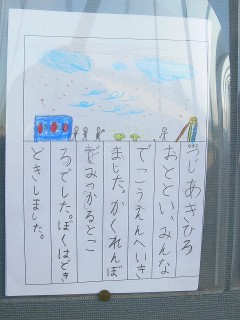 つじあきひろ
おとといみんな
でこうえんへいき
ました。かくれんぼ
をしてみつかるとこ
ろでした。ぼくはどき
どきしました。